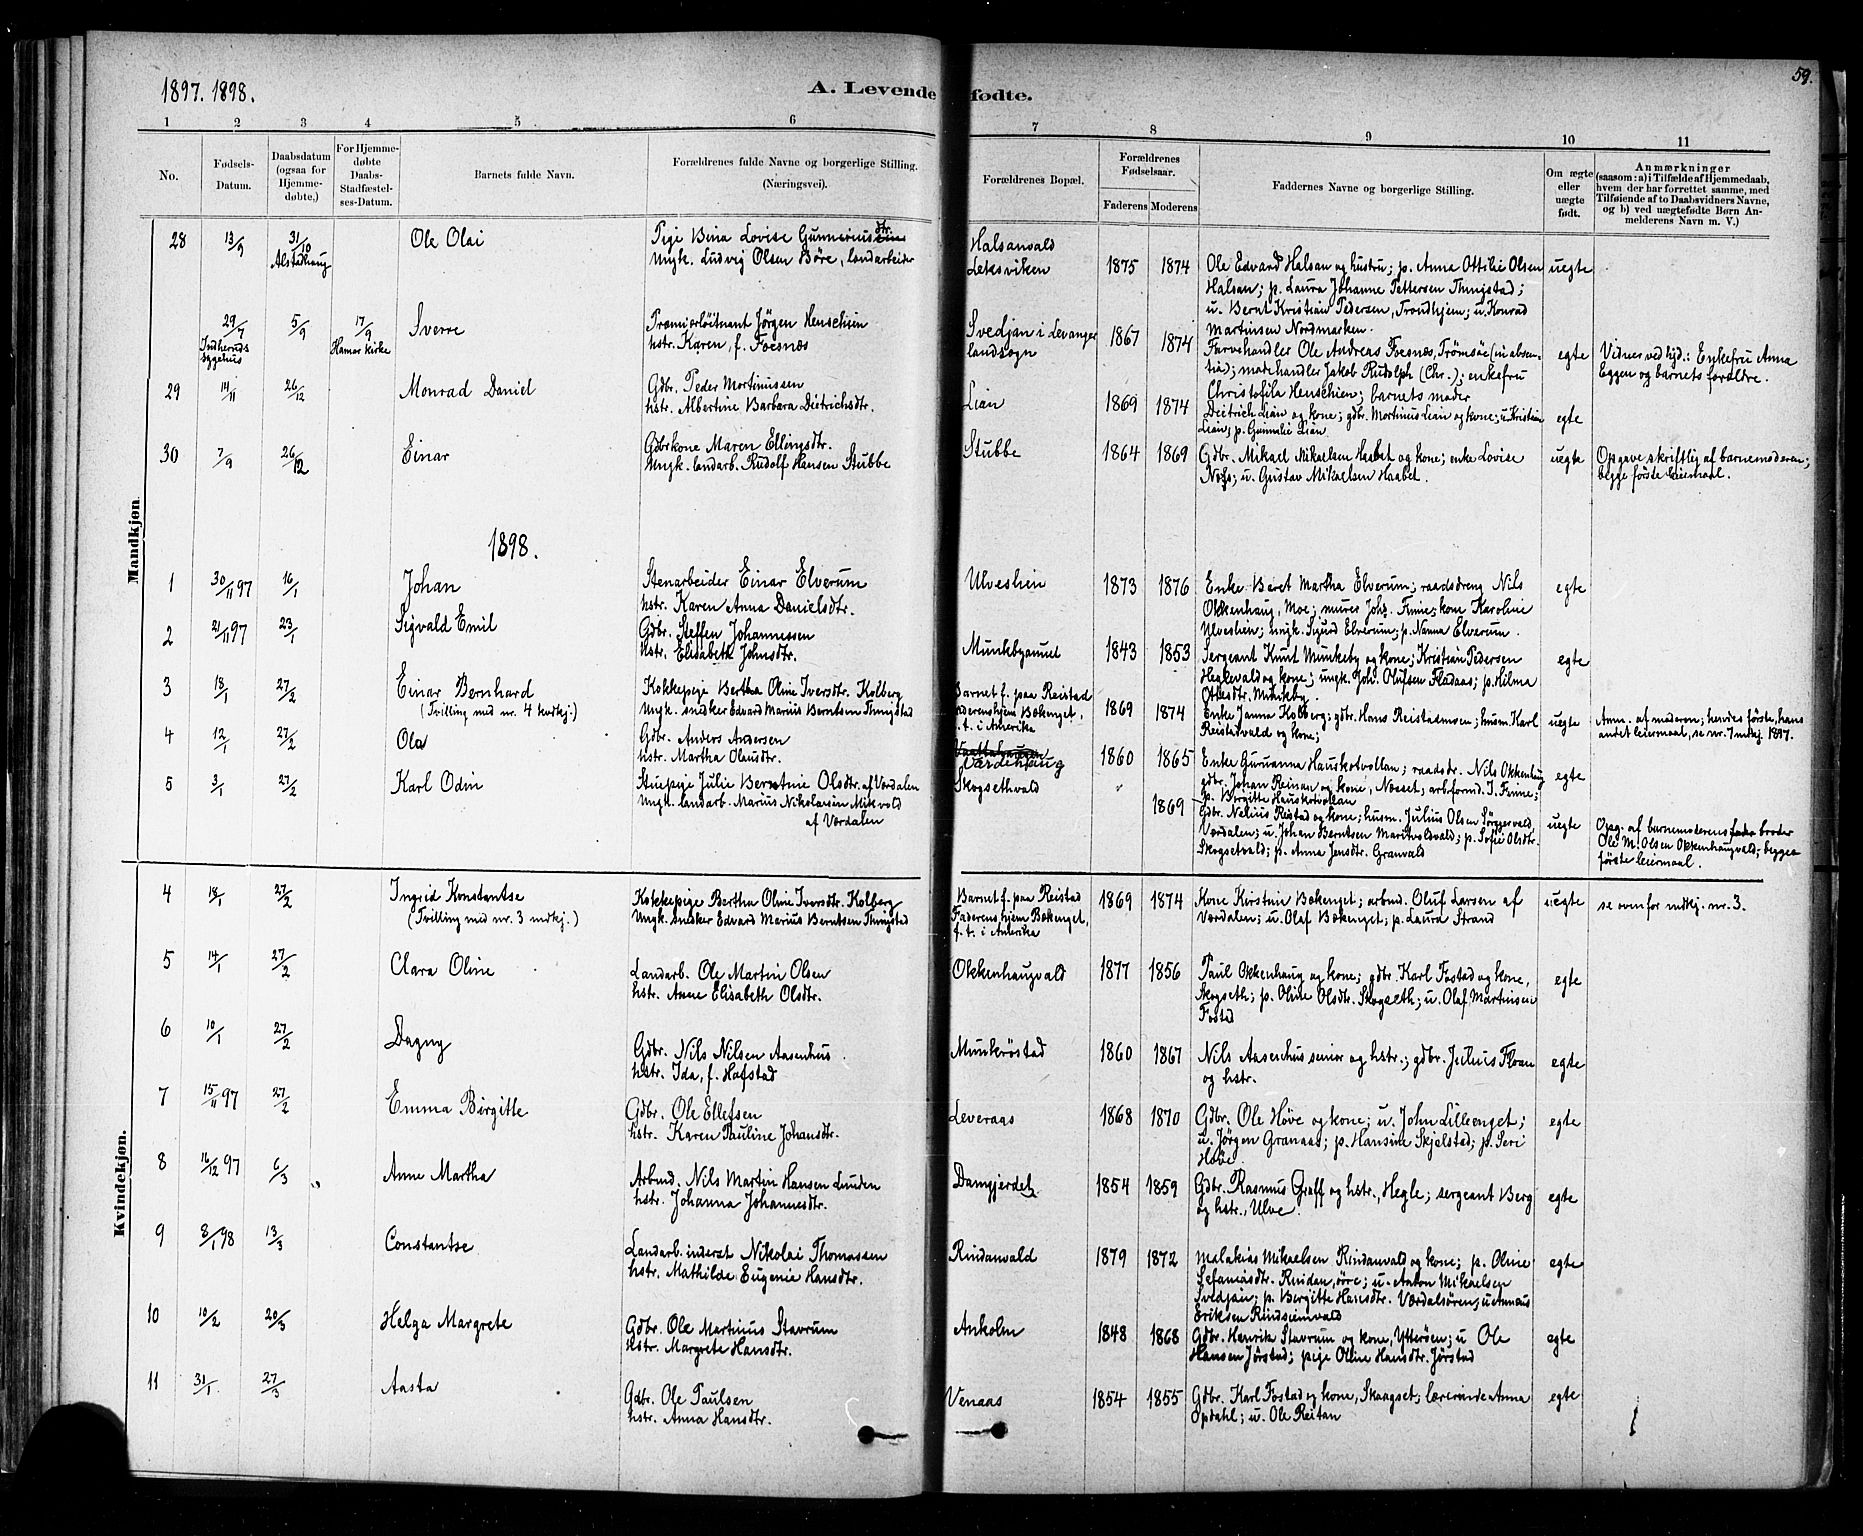 59.
1897. 1898.
A. Levende fødte.
1 2 3 4 5 6 7 8 9 10 11
No.
Fødsels-Datum.
Daabsdatum (ogsaa for Hjemmedøbte,)
For Hjemmedøbte Daabs-Stadfæstelses-Datum.
Barnets fulde Navn.
Forældrenes fulde Navne og borgerlige Stilling.
(Næringsvei).
Forældrenes Bopæl.
Forældrenes Fødselsaar.
Faderens Moderens
Faddernes Navne og borgerlige Stilling.
Om ægte eller uægte født.
Anmærkninger
(saasom: a) i Tilfælde af Hjemmedaab,
hvem der har forrettet samme, med
Tilføiende af to Daabsvidners Navne,
og b) ved uægtefødte Børn Anmelderens Navn m. V.)
Mandkjøn.
28 13/9 31/10 Alstadhaug Ole Olai
Pige Bina Lovise Gunneriusdtr.
Ungk. Ludvig Olsen Børe, landarbeider
Halsanvald
Leksviken 1875 1874
Ole Edvard Halsan og hustru; p. Anna Ottilie Olsen
Halsan; p. Laura Johanne Pettersen Thingstad;
u. Bernt Kristian Pedersen, Trondhjem; u. Konrad
Martinsen Nordmarken.
uegte
29/7 Indherreds sygehus 5/9 17/9 Hamar kirke Sverre
Premierløitnant Jørgen Henschien
hstr. Karen, f. Foesnæs
Svedjan i Levanger
landsogn 1867 1874
Farvehandler Ole Andreas Foesnæs, Tromsøe (in absentia); matr.handler Jakob Rudolph (Chr.); enkefru
Christofila Henschien; barnets moder
egte
Vidner ved hjd.: Enkefru Anna
Eggen og barnets forældre.
29 14/11 26/12 Monrad Daniel
Gdbr. Peder Mortinussen
hstr. Albertine Barbara Dietrichsdtr.
Lian 1869 1874
Dietrich Lian og kone; gdbr. Mortinus Lian og kone; u. Kristian
Lian; p. Gunnelie Lian
egte
30 7/9 26/12 Einar
Gdbrkone Maren Ellingsdtr.
Ungk. landarb. Rudolf Hansen Stubbe
Stubbe 1864 1869
Gdbr. Mikael Mikaelsen Haabet og kone; enke Lovise
Næss; u. Gustav Mikaelsen Haabet.
uegte
Opgave skriftlig af barnemoderen;
begge første leiermaal.
1898.
1 30/11 97 16/1 Johan
Stenarbeider Einar Elverum
hstr. Karen Anna Danielsdtr.
Ulveshein 1873 1876
Enke Beret Martha Elverum; raadsdreng Nils
Okkenhaug, Moe; murer Johs. Finne; kone Karoline
Ulveshein; ungk. Sigurd Elverum; p. Nanna Elverum.
egte
2 21/11 97 23/1 Sigvald Emil
Gdbr. Steffen Johannessen
hstr. Elisabeth Johnsdtr.
Munkbyaunet 1843 1853
Sergeant Knut Munkeby og kone; Kristian Pedersen
Heglevald og kone; ungk. Joh. Olufsen Fladaas; p. Hilma
Ottesdtr. Munkeby.
egte
3 18/1 27/2 Einar Bernhard
(Tvilling med nr. 4 kvdkj.)
Kokkepige Bertha Oline Iversdtr. Kolberg
Ungk. snekker Edvard Marius Berntsen Thingstad
Barnet f. paa Reistad
Faderens hjem Bokenget,
f. t. i Amerika 1869 1874
Enke Janna Kolberg; gdbr. Hans Reistadmoen; husm. Karl
Reistadvald og kone;
uegte
Anm. af moderen; hendes første, hans
andet leiermaal, se nr. 7 mdkj. 1897.
4 12/1 27/2 Ola
Gdbr. Anders Andersen
hstr. Martha Olausdtr.
Værdehaug 1860 1865
Enke Gurianna Hauskotvollan; raadsdr. Nils Okkenhaug
gdbr. Johan Reinan og kone, Næsset; arbformd. J. Finne;
p. Birgitte Hauskotvollan
egte
5 3/1 27/2 Karl Odin
Stuepige Julie Berntine Olsdtr. af Værdalen
Ungk. landarb. Marius Nikolaisen Mikvold
af Værdalen
Skogsethvald " 1869
Gdbr. Nelius Reistad og kone; husm. Julius Olsen Sørgersvald
Værdalen; u. Johan Berntsen Maritvoldvald; p. Sofie Olsdtr.
Skogsetvald; p. Anna Jensdtr. Granvald
uegte
Opg. af barnemoderens broder
Ole M. Olsen Okkenhaugvald; begges
første leiermaal.
Kvindekjøn.
4 18/1 27/2 Ingrid Konstantse
(Tvilling med nr. 3 mdkj.)
Kokkepige Bertha Oline Iversdtr. Kolberg
Ungk. snekker Edvard Marius Berntsen Thingstad
Barnet f. paa Reistad
Faderens hjem Bokenget,
f. t. i Amerika 1869 1874
Kone Kirstin Bokenget; arbmd. Oluf Larsen af
Værdalen; u. Olaf Bokenget; p. Laura Strand
uegte
se ovenfor mdkj. nr. 3.
5 14/1 27/2 Clara Oline
Landarb. Ole Martin Olsen
hstr. Anne Elisabeth Olsdtr.
Okkenhaugvald 1877 1856
Paul Okkenhaug og kone; gdbr. Karl Fostad og kone,
Skogseth; p. Oline Olsdtr. Skogseth; u. Olaf Martinsen
Fostad
egte
6 10/1 27/2 Dagny
Gdbr. Nils Nilsen Aasenhus
hstr. Ida, f. Hafstad
Munkrøstad 1860 1867
Nils Aasenhus senior og hstr.; gdbr. Julius Floan
og hstr.
egte
7 15/11 97 27/2 Emma Birgitte
Gdbr. Ole Ellefsen
hstr. Karen Pauline Johansdtr.
Leveraas 1868 1870
Gdbr. Ole Høve og kone; u. John Lilleenget;
u. Jørgen Granaas; p. Hansine Skjelstad; p. Seri
Høve.
egte
8 16/12 97 6/3 " Anne Martha
Arbmd. Nils Martin Hansen Lunden
hstr. Johanna Johannesdtr.
Damgjerdet 1854 1859
Gdbr. Rasmus Graff og hstr., Hegle; sergeant Berg
og hstr., Ulve.
egte
9 8/1 98 13/3 Constantse
Landarb. inderst Nikolai Thomassen
hstr. Mathilde Eugenie Hansdtr.
Rindanvald 1879 1872
Malakias Mikaelsen Rindanvald og kone; p. Oline
Sefaniasdtr. Rindan, øvre; u. Anton Mikaelsen
Svedjan; p. Bergitte Hansdtr. Værdalsøren; u. Annæus
Eriksen Rindseimvald
egte
10 10/2 20/3 Helga Margrete
Gdbr. Ole Martinus Stavrum
hstr. Margrete Hansdtr.
Ankolm 1848 1868
Gdbr. Henrik Stavrum og kone, Ytterøen; u. Ole
Hansen Jørstad; pige Oline Hansdtr. Jørstad
egte
11 31/1 27/3 Aasta
Gdbr. Ole Paulsen
hstr. Anna Hansdtr.
Venaas 1854 1855
Gdbr. Karl Fostad og kone, Skaagset; lærerinde Anna
Opdahl; u. Ole Reitan
egte